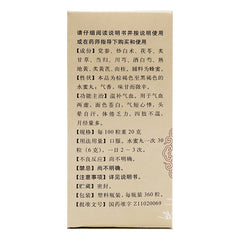 请仔细阅读说明书并按说明使用
或在药师指导下购买和使用
[成份] 党参、炒白术、茯苓、炙
甘草、当归、川芎、酒白芍、熟
地黄、炙黄芪、肉桂。辅料为蜂蜜。
[性状] 本品为棕褐色至黑褐色的
水蜜丸，气香，味甘而微辛。
[功能主治] 温补气血。用于气血
两虚，面色苍白，气短心悸，头
晕自汗，体倦乏力，四肢不温，
月经量多。
[规格] 每100粒重20克
[用法用量] 口服，水蜜丸一次30
粒（6克），一日2～3次。
[不良反应] 尚不明确。
[禁忌] 尚不明确。
[注意事项] 详见说明书。
[贮藏] 密封。
[包装] 塑料瓶装。每瓶装360粒。
[批准文号] 国药准字Z11020069